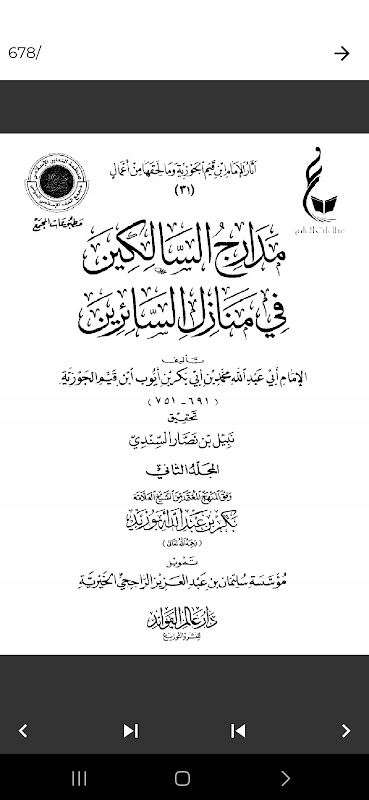 678/
آثار الإمام ابن قيم الجوزية وما لحقها من أعمال
(٣١)
مطبوعات المجمع
مَدَارِجُ السَّالِكِينَ
فِي مَنَازِلِ السَّائِرِينَ
تأليف
الإمام أبي عبد الله محمد بن أبي بكر بن أيوب ابن قيم الجوزية
(٦٩١ - ٧٥١)
تحقيق
نبيل بن نصار السندي
المجلد الثاني
وفق المنهج المعتمد من الشيخ العلامة
بكر بن عبد الله أبو زيد
(رحمه الله تعالى)
تمويل
مؤسسة سليمان بن عبد العزيز الراجحي الخيرية
دار عالم الفوائد
للنشر والتوزيع